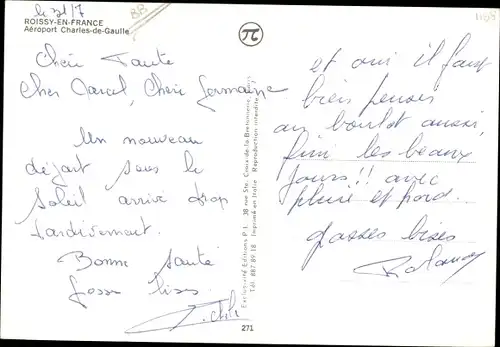 le 31/7
ROISSY-EN-FRANCE
Aéroport Charles-de-Gaulle
BB
Chère Tante
Cher Marcel, Chère Germaine
Un nouveau
départ sous le
Soleil arrivé trop
tardivement.
Bonne santé
Grosse bises
Exclusivité Editions P.I. 38 rue Ste. Croix-de-la-Bretonnerie, Paris
Tél. 887.89.18 Imprimé en Italie Reproduction interdite
271
et oui il faut
bien penser
au boulot aussi,
fini les beaux
jours!! avec
pluie et froid.
grosses bises